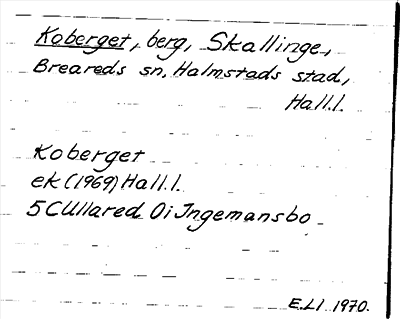 Koberget, berg, Skallinge,
Breareds sn, Halmstads stad,
Hall.l.
Koberget
ek (1969) Hall.l.
5C Ullared 0i Ingemansbo
E.L.l 1970.